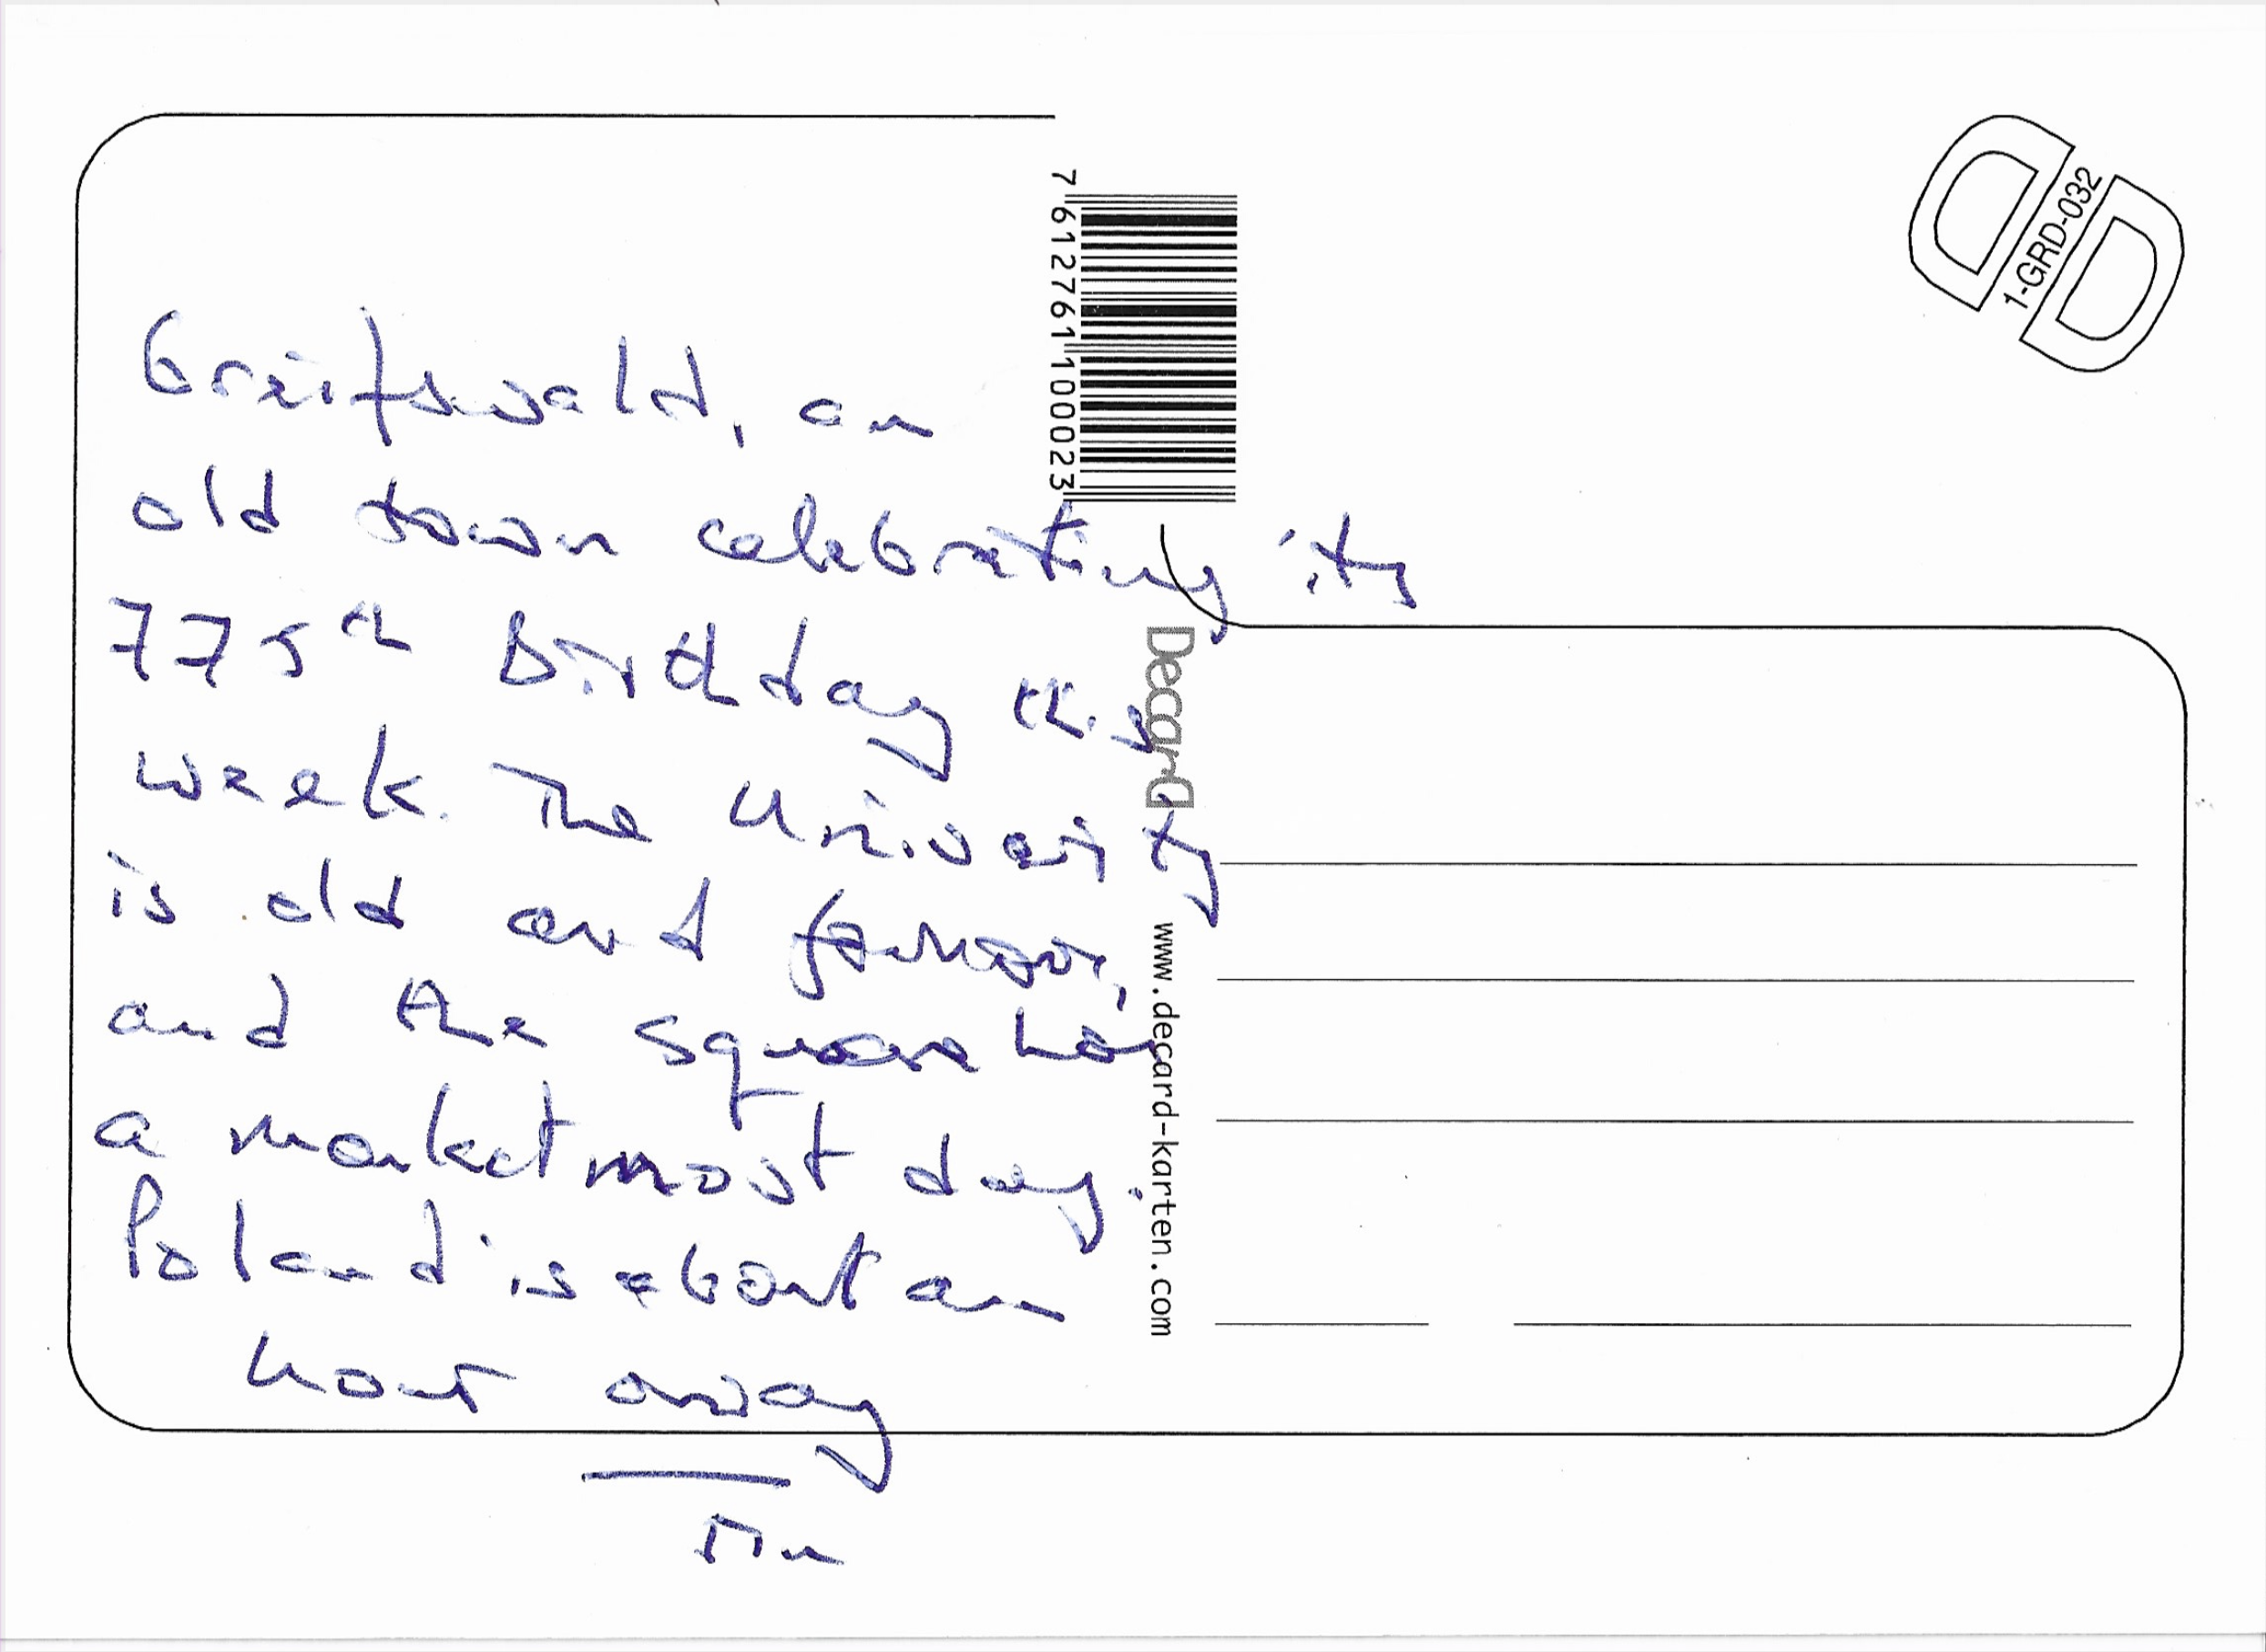 Greifswald, an
old town celebrating its
775th Birthday this
week. The University
is old and famous,
and the square has
a market most day.
Poland is about an
hour away
7 612761 100023
1-GRD-032
Decard
www.decard-karten.com